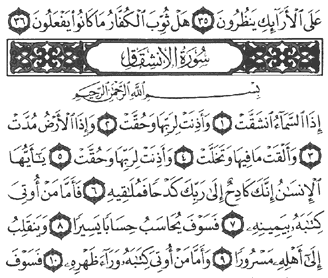 عَلَى ٱلْأَرَآئِكِ يَنظُرُونَ ٣٥ هَلْ ثُوِّبَ ٱلْكُفَّارُ مَا كَانُوا۟ يَفْعَلُونَ ٣٦
سُورَةُ الِانشِقَاقِ
بِسْمِ ٱللَّهِ ٱلرَّحْمَٰنِ ٱلرَّحِيمِ
إِذَا ٱلسَّمَآءُ ٱنشَقَّتْ ١ وَأَذِنَتْ لِرَبِّهَا وَحُقَّتْ ٢ وَإِذَا ٱلْأَرْضُ مُدَّتْ
٣ وَأَلْقَتْ مَا فِيهَا وَتَخَلَّتْ ٤ وَأَذِنَتْ لِرَبِّهَا وَحُقَّتْ ٥ يَٰٓأَيُّهَا
ٱلْإِنسَٰنُ إِنَّكَ كَادِحٌ إِلَىٰ رَبِّكَ كَدْحًا فَمُلَٰقِيهِ ٦ فَأَمَّا مَنْ أُوتِىَ
كِتَٰبَهُۥ بِيَمِينِهِۦ ٧ فَسَوْفَ يُحَاسَبُ حِسَابًا يَسِيرًا ٨ وَيَنقَلِبُ
إِلَىٰٓ أَهْلِهِۦ مَسْرُورًا ٩ وَأَمَّا مَنْ أُوتِىَ كِتَٰبَهُۥ وَرَآءَ ظَهْرِهِۦ ١٠ فَسَوْفَ